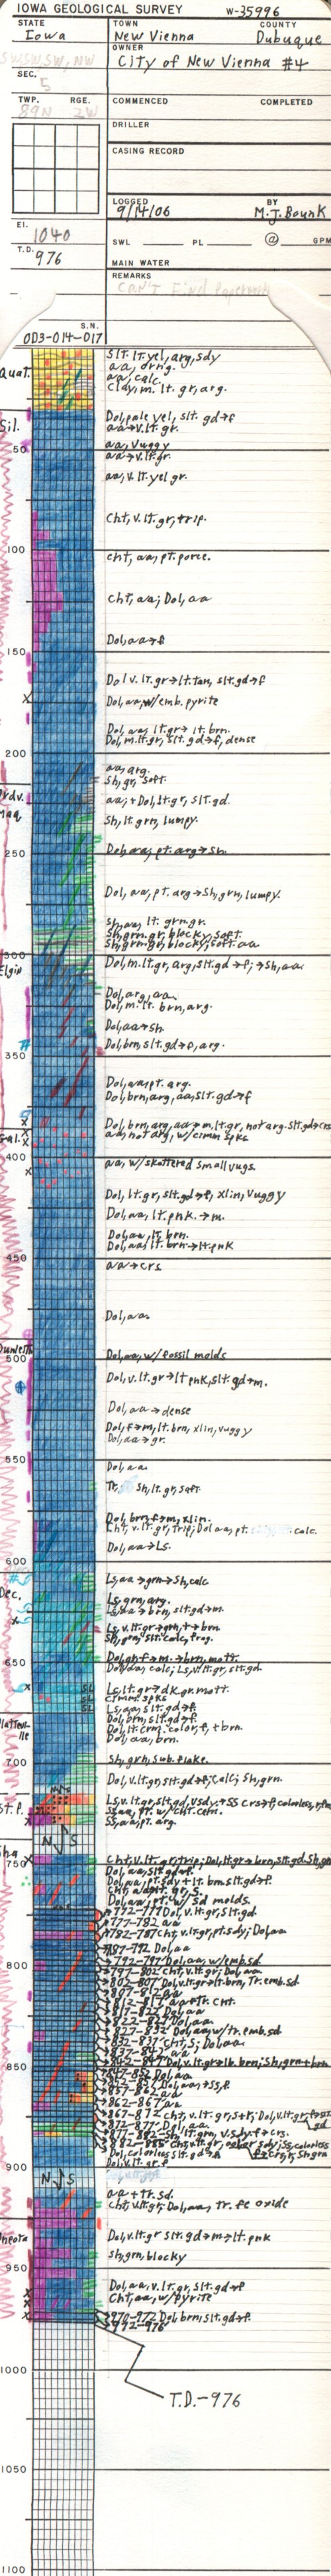 IOWA GEOLOGICAL SURVEY W-35996
STATE TOWN COUNTY
Iowa New Vienna Dubuque
OWNER
City of New Vienna #4
SW SW SW, NW
SEC.
5
TWP. RGE. COMMENCED COMPLETED
89N 2W
DRILLER
CASING RECORD
LOGGED BY
9/14/06 M.J. Bounk
El.
1040
SWL PL @ GPM
T.D.
976
MAIN WATER
REMARKS
CAN'T Find Paperwork
S.N.
OD3-014-017
Slt. lt. yel, arg, sdy
aa, orng.
aa, calc.
Clay, m. lt. gr, arg.
Quat.
Dol, pale yel, slt. gd→f
aa→v. lt. gr.
Sil.
aa, Vuggy
50
aa→v. lt. gr.
aa, v. lt. yel gr.
Cht, v. lt. gr, trip.
100
cht, aa, pt. porce.
Cht, aa; Dol, aa
Dol, aa→f
150
Dol v. lt. gr→lt. tan, slt. gd→f
Dol, aa, w/ emb. pyrite
Dol, aa, lt. gr→ lt. brn.
Dol, m. lt. gr, slt. gd→f, dense
200
aa, arg.
Sh, gr, soft.
aa, + Dol, lt. gr, slt. gd.
Maq.
Sh, lt. grn, lumpy.
Dol, aa, pt. arg→Sh.
250
Dol, aa, pt. arg→Sh, grn, lumpy.
Sh, aa, lt. grn. gr.
Sh, grn. gr, blocky, soft.
Sh, grn. gr, blocky, soft. aa.
300
Dol, m. lt. gr, arg, slt. gd→f, →Sh, aa.
Elgin
Dol, arg, aa.
Dol, m. lt. brn, arg.
Dol, aa→sh.
Dol, brn, slt. gd→f, arg.
350
Dol, aa, pt. arg.
Dol, brn, arg, aa, slt. gd→f
Dol, brn, arg, aa→m. lt. gr, not arg. slt. gd→crs
aa, not arg, w/ cimm spks
Gal.
400
aa, w/ skattered small vugs.
Dol, lt. gr, slt. gd→f, xlin, Vuggy
Dol, aa, lt. pnk.→m.
Dol, aa, lt. brn.
Dol, aa, lt. brn→lt. pnk
450
aa→crs
Dol, aa.
Dunleith
Dol, aa, w/ fossil molds
500
Dol, v. lt. gr→lt pnk, slt. gd→m.
Dol, aa→dense
Dol, f→m, lt. brn, xlin, vuggy
Dol, aa→gr.
550
Dol, aa.
Tr. Sh, lt. gr, soft.
Dol, brn, f→m, xlin.
Cht, v. lt. gr, trip; Dol, aa, pt. calc.
600
Dol, aa→Ls.
Ls, aa→grn→Sh, calc
Dec.
Ls, grn, arg.
Ls, aa→brn, slt. gd→m.
Ls, v. lt. gr→grn, + brn
Sh, grn, slt. calc, frag.
Dol, gn, f→m.→brn, mott.
650
Dol, aa, calc; Ls, v. lt. gr, slt. gd.
SL
SL
SL
Ls, lt. gr→dk. gr. mott.
cimm. spks
Ls, aa, slt. gd→f
Dol, brn, slt. gd→f
Platteville
Dol, lt. crm. color, f, + brn.
Dol, aa, brn.
Sh, grn, sub. flake.
700
Dol, v. lt. gr, slt. gd→f, Calc; Sh, grn.
St. P.
Ls, v. lt. gr, slt. gd, vsdy→SS crs→f, colorless, r, fros
SS, aa, pt. w/ cht. cem.
SS, aa, pt. arg.
N S
Sha
750
Cht, v. lt. gr, trip; Dol, lt. gr→brn, slt. gd. Sh, grn
Dol, aa, slt. gd→f.
Dol, aa, pt. sdy + lt. brn slt. gd→f
Dol, aa, pt. w/ sd molds.
772-777 Dol, v. lt. gr, slt. gd
777-782 aa
782-787 cht, v. lt. gr, pt. sdy; Dol, aa
787-792 Dol, aa
792-797 Dol, aa, w/ emb. sd
797-802 Cht, v. lt. gr; Dol, aa
800
802-807 Dol, v. lt. gr→lt. brn, Tr. emb. sd
807-812 aa
812-817 aa + Tr. Cht.
817-822 Dol, aa
822-827 aa
827-832 Dol, aa, w/ tr. emb. sd
832-837 cht, S; Dol, aa
837-842 aa
842-847 Dol, v. lt. gr→lt. brn; Sh, grn + brn
850
847-852 Dol, aa
857-862 Dol, aa→SS, f.
862-867 aa
867-872 cht, v. lt. gr, s + r; Dol, v. lt. gr, f→slt. gd
872-877 Dol, aa.
Dol, v. lt. gr, f
900
N S
aa + tr. sd.
Cht, v. lt. gr; Dol, aa, tr. fe oxide
Oneota
Dol, v. lt. gr slt. gd→m→lt. pnk
Sh, grn, blocky
950
Dol, aa, v. lt. gr, slt. gd→f
Cht, aa, w/ pyrite
970-972 Dol, brn, slt. gd→f.
972-976
1000
T.D.-976
1050
1100